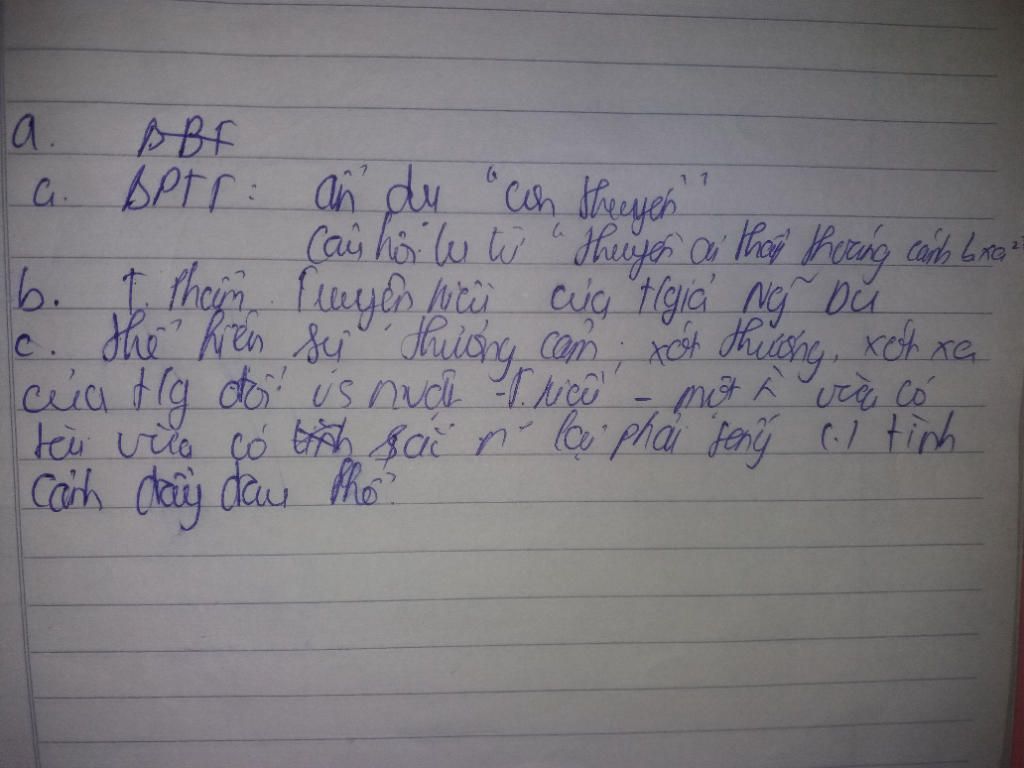 a. BBF
a. BPTT: ẩn dụ "con thuyền"
Câu hỏi tu từ "thuyền ai thấp thoáng cánh b xa"
b. T. Phẩm Truyện Kiều của t/giả Ng~ Du
c. thể hiện sự thương cảm, xót thương, xót xa
của t/g đối vs nvật T.Kiều - một vừa có
tài vừa có tình sắc n~ lại phải sống (.) tình
cảnh đầy đau khổ.